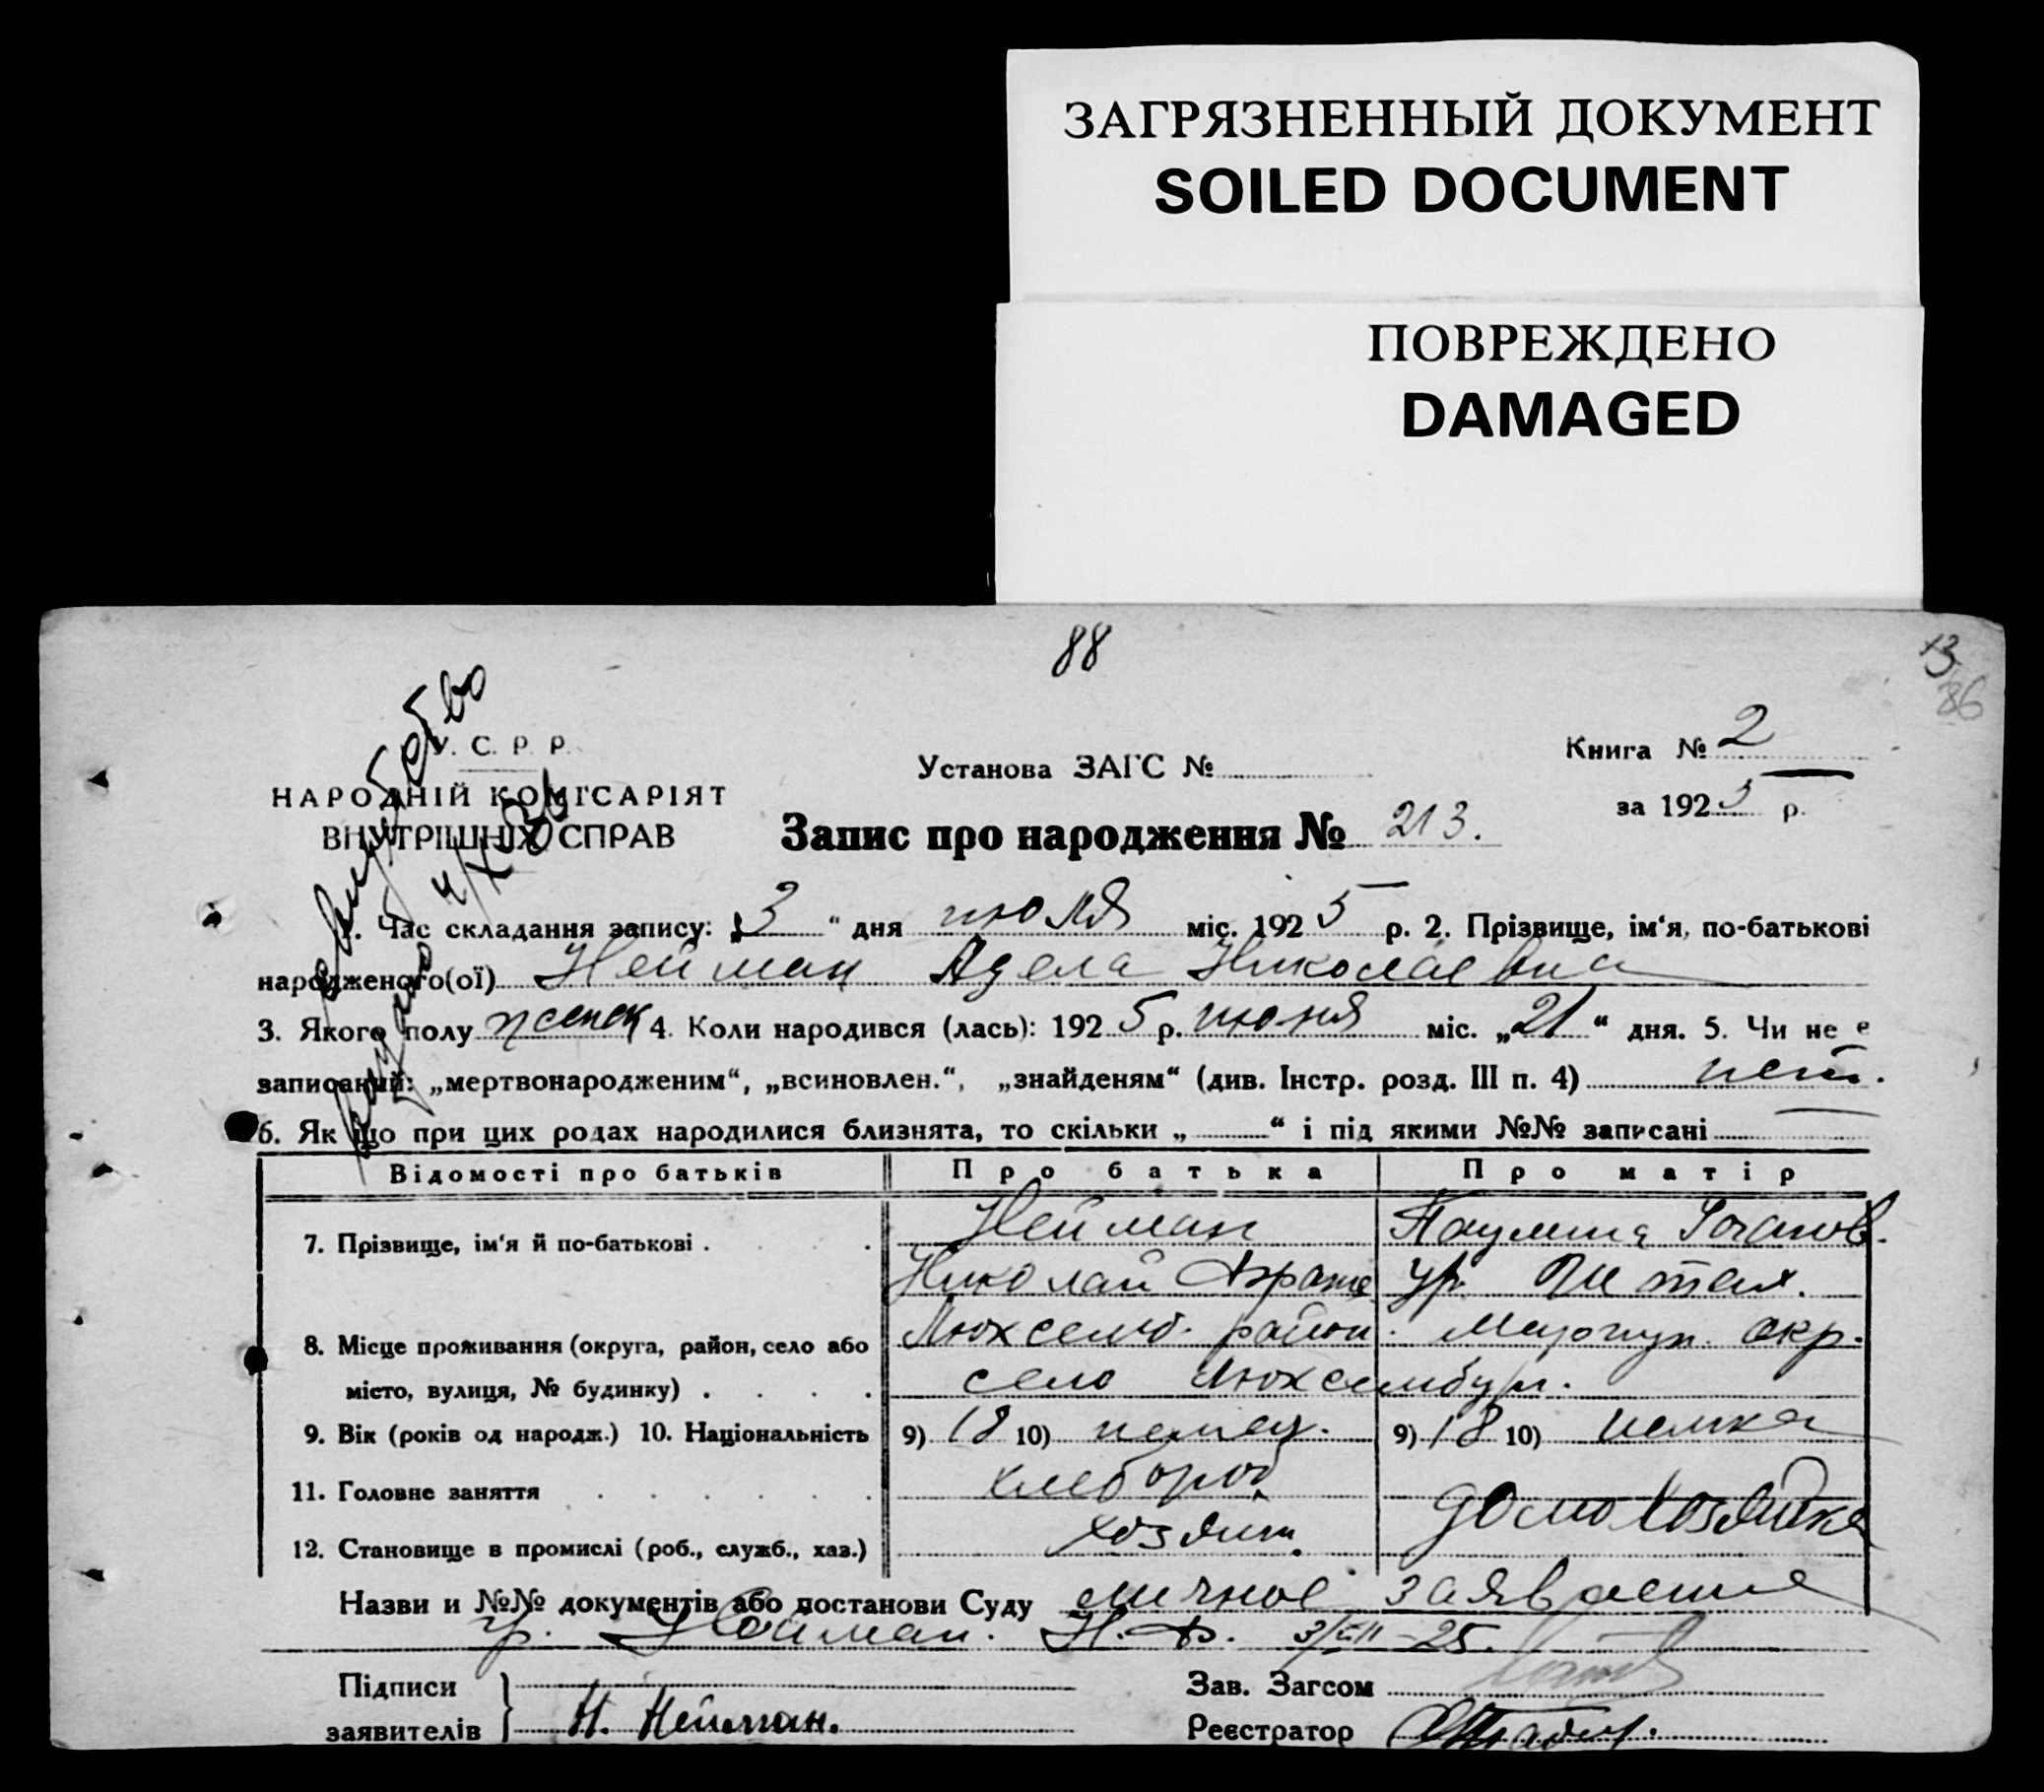 ЗАГРЯЗНЕННЫЙ ДОКУМЕНТ
SOILED DOCUMENT
ПОВРЕЖДЕНО
DAMAGED
88
13
86
У. С. Р. Р.
НАРОДНІЙ КОМІСАРІЯТ
ВНУТРІШНІХ СПРАВ
Установа ЗАГС №
Книга № 2
за 1925 р.
Запис про народження № 213.
1. Час складання запису: „3“ дня июля міс. 1925 р. 2. Прізвище, ім‘я, по-батькові
народженого(ої) Нейман Адела Николаевна
3. Якого полу женск 4. Коли народився (лась): 1925 р. июня міс. „21“ дня. 5. Чи не е
записаний: „мертвонародженим“, „всиновлен.“, „знайденям“ (див. Інстр. розд. III п. 4) нет.
6. Як що при цих родах народилися близнята, то скільки „ “ і під якими №№ записані
Відомості про батьків Про батька Про матір
7. Прізвище, ім‘я й по-батькові . Нейман Паулина
Николай ур.
8. Місце проживання (округа, район, село або Люхсемб. район. Мариуп. окр.
місто, вулиця, № будинку) . село Люхсембург.
9. Вік (років од народж.) 10. Національність 9) 18 10) немец. 9) 18 10) немка
11. Головне заняття хлебороб. домохозяйка
12. Становище в промислі (роб., служб., хаз.) хозяин.
Назви и №№ документів або постанови Суду личное заявление
гр. Нейман. Н. Ф. 3/VII-25.
Підписи
заявителів Н. Нейман.
Зав. Загсом
Реєстратор